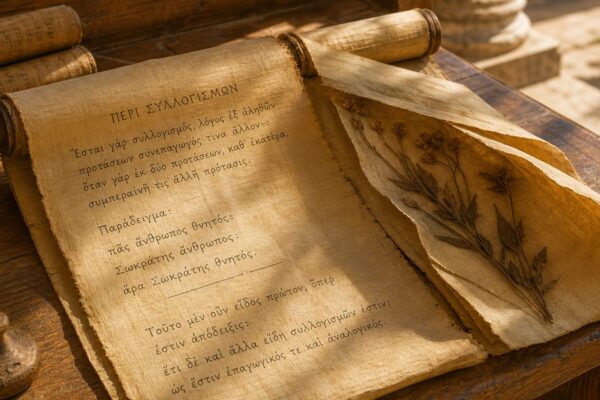 ΠΕΡΙ ΣΥΛΛΟΓΙΣΜΩΝ
Ἔσται γὰρ συλλογισμός, λόγος ἐξ ἀληθῶν
προτάσεων συνεπαγωγός τινα ἄλλον·:
ὅταν γὰρ ἐκ δύο προτάσεων, καθ' ἑκατέρα,
συμπεραίνῃ τις ἄλλη πρότασις.
Παράδειγμα:
πᾶς ἄνθρωπος θνητός:
Σωκράτης ἄνθρωπος:
ἄρα Σωκράτης θνητός.
Τοῦτο μὲν οὖν εἶδος πρῶτον, ὅπερ
ἐστὶν ἀπόδειξις:
ἔτι δὲ καὶ ἄλλα εἴδη συλλογισμῶν ἐστιν:
ὡς ἔστιν ἐπαγωγικός τε καὶ ἀναλογικός.